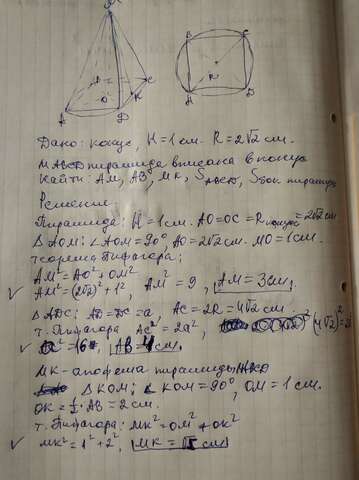 M
A
O
D
C
K
B
C
R
A
D
Дано: конус, H=1см. R=2√2 см.
MABCD пирамида вписана в конус
Найти: AM, AB, MK, SABCD, Sбок пирамиды
Решение:
Пирамида: H=1см. AO=OC=Rконуса=2√2см
ΔAOM: ∠AOM=90°, AO=2√2см. MO=1см.
теорема Пифагора:
AM²=AO²+OM²
AM²=(2√2)²+1², AM²=9, AM=3см,
ΔADC: AD=DC=a, AC=2R=4√2см.
т. Пифагора AC²=2a², (4√2)²=2a²
a²=16, AB=4см,
MK-апофема пирамиды
ΔKOM: ∠KOM=90°, OM=1см.
OK=½·AB=2см.
т. Пифагора: MK²=OM²+OK²
MK²=1²+2², MK=√5 см